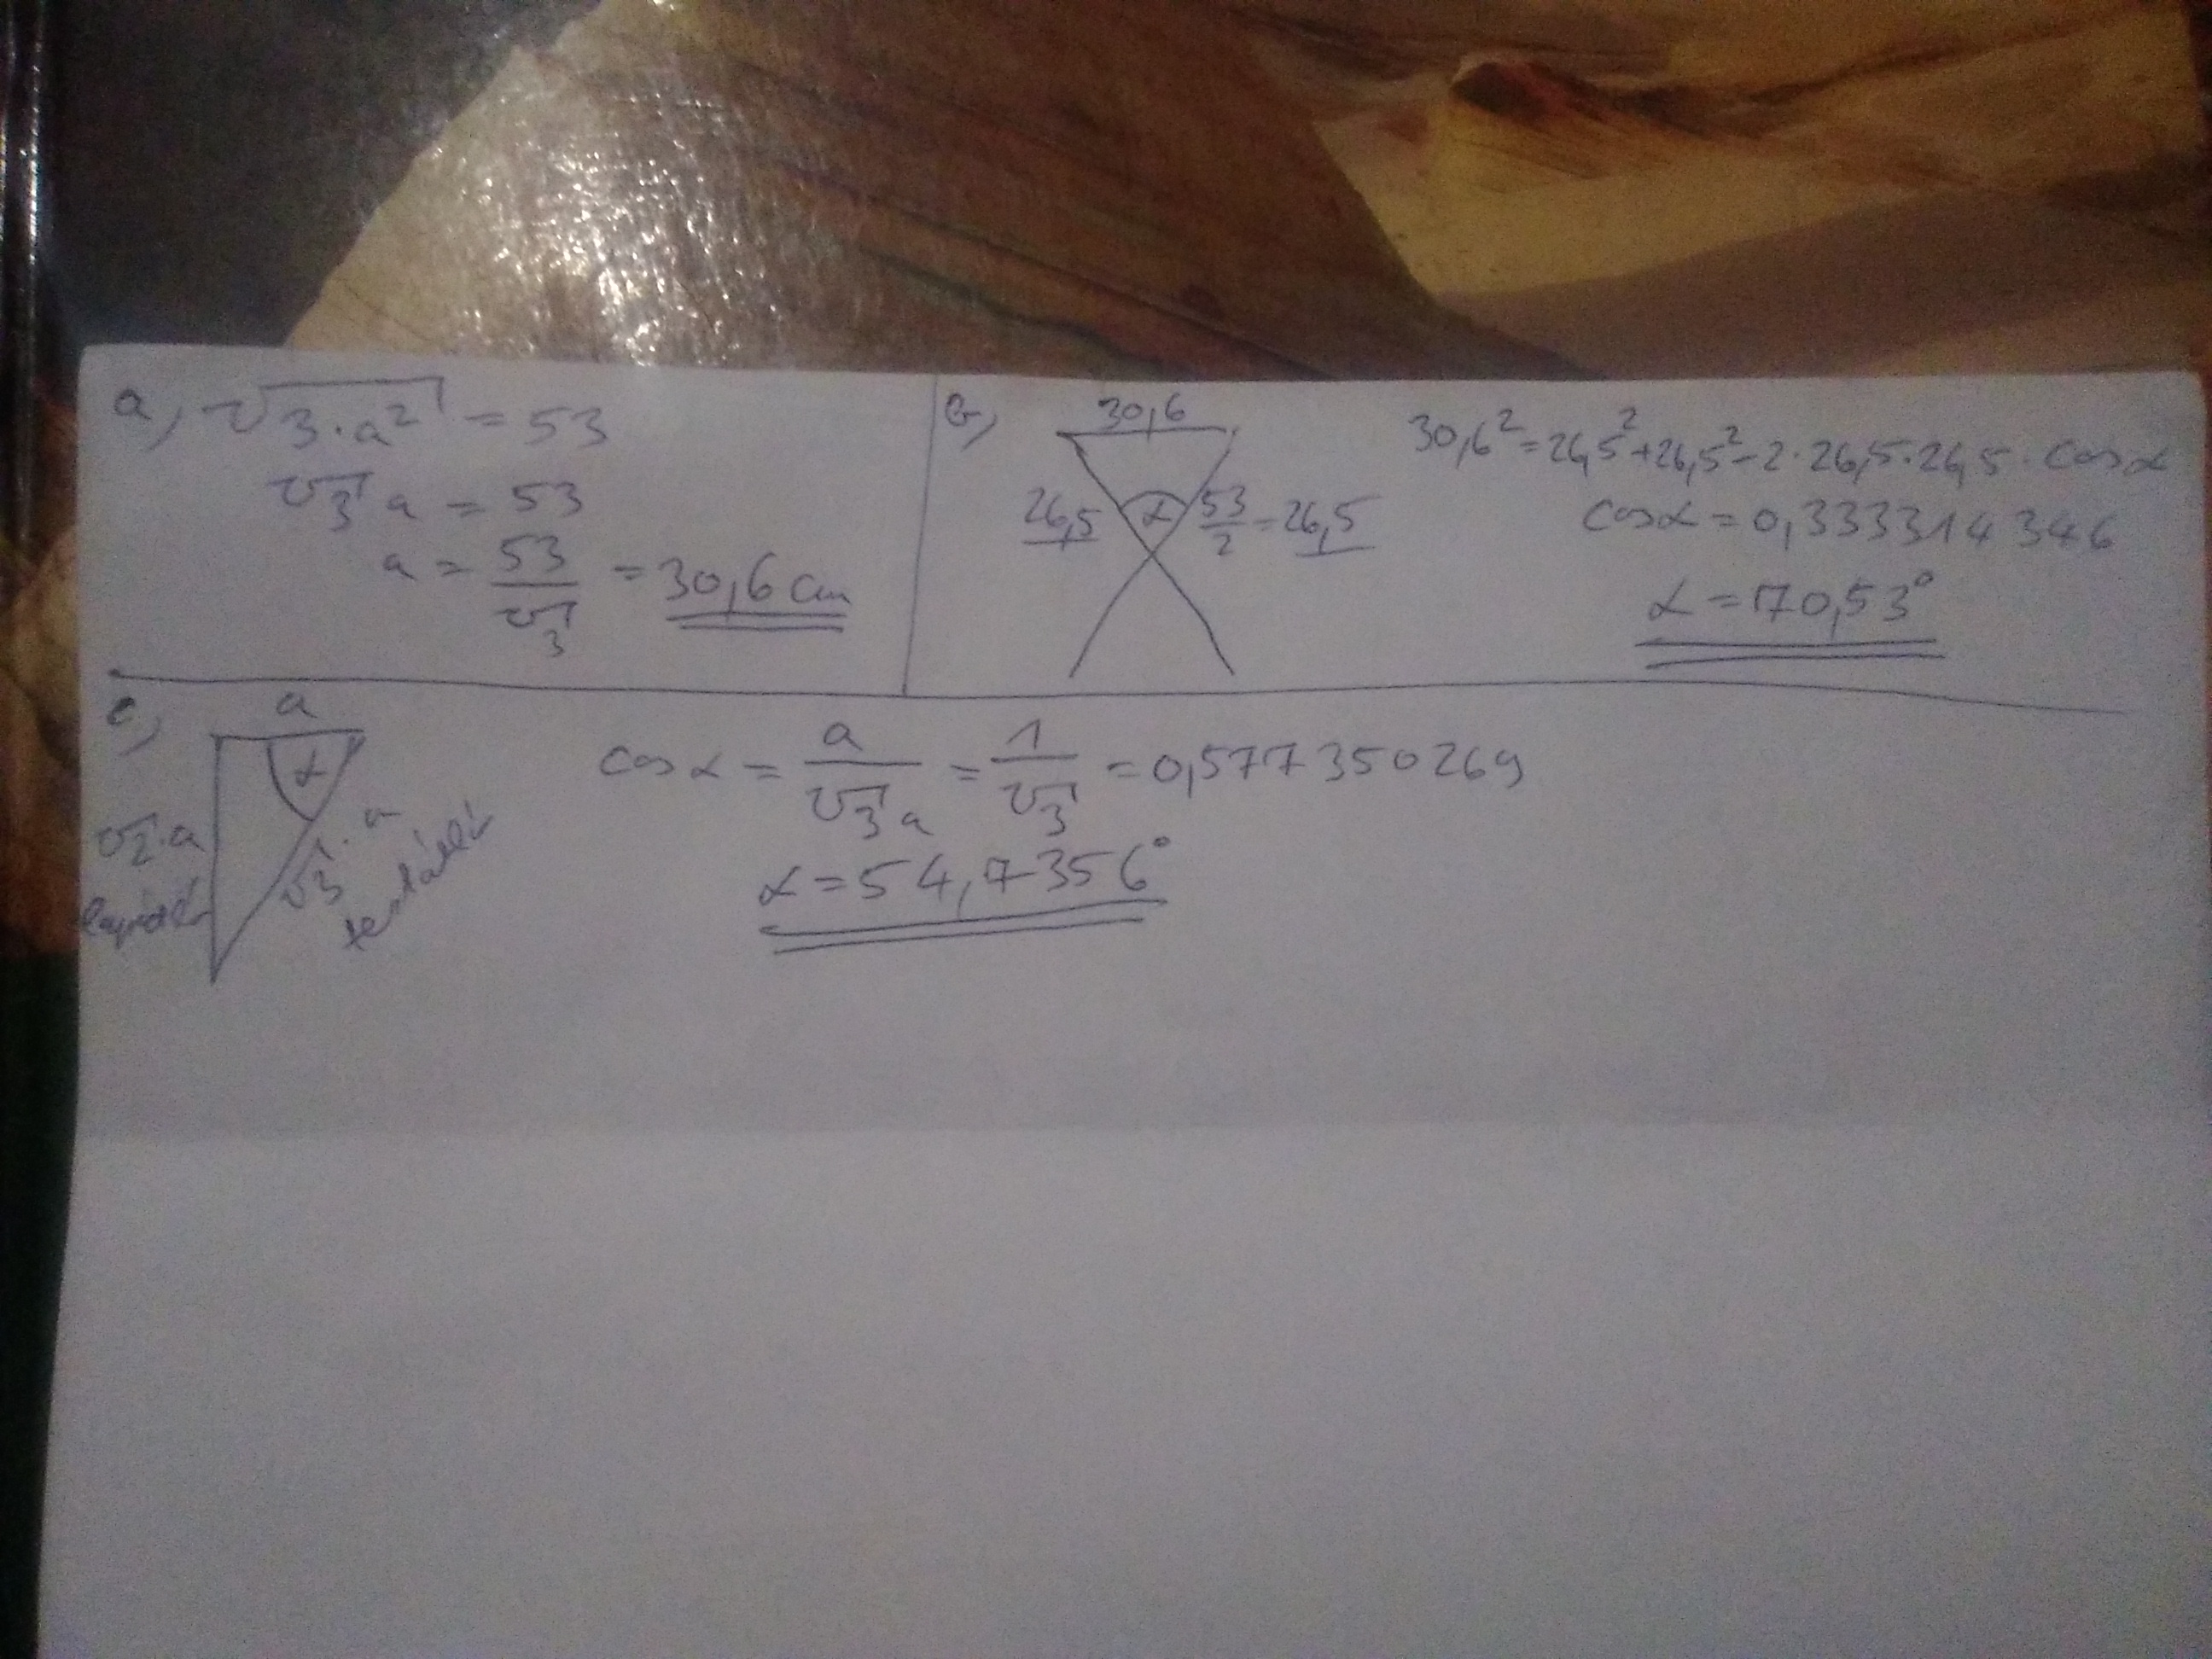 a, √3·a² = 53
√3 a = 53
a = 53/√3 = 30,6 cm
b, 30,6
26,5 α 53/2 = 26,5
30,6² = 26,5² + 26,5² - 2·26,5·26,5·cos α
cos α = 0,333314346
α = 70,53°
c, a
α
√2·a
lapátló
√3·a
testátló
cos α = a/√3 a = 1/√3 = 0,577350269
α = 54,7356°